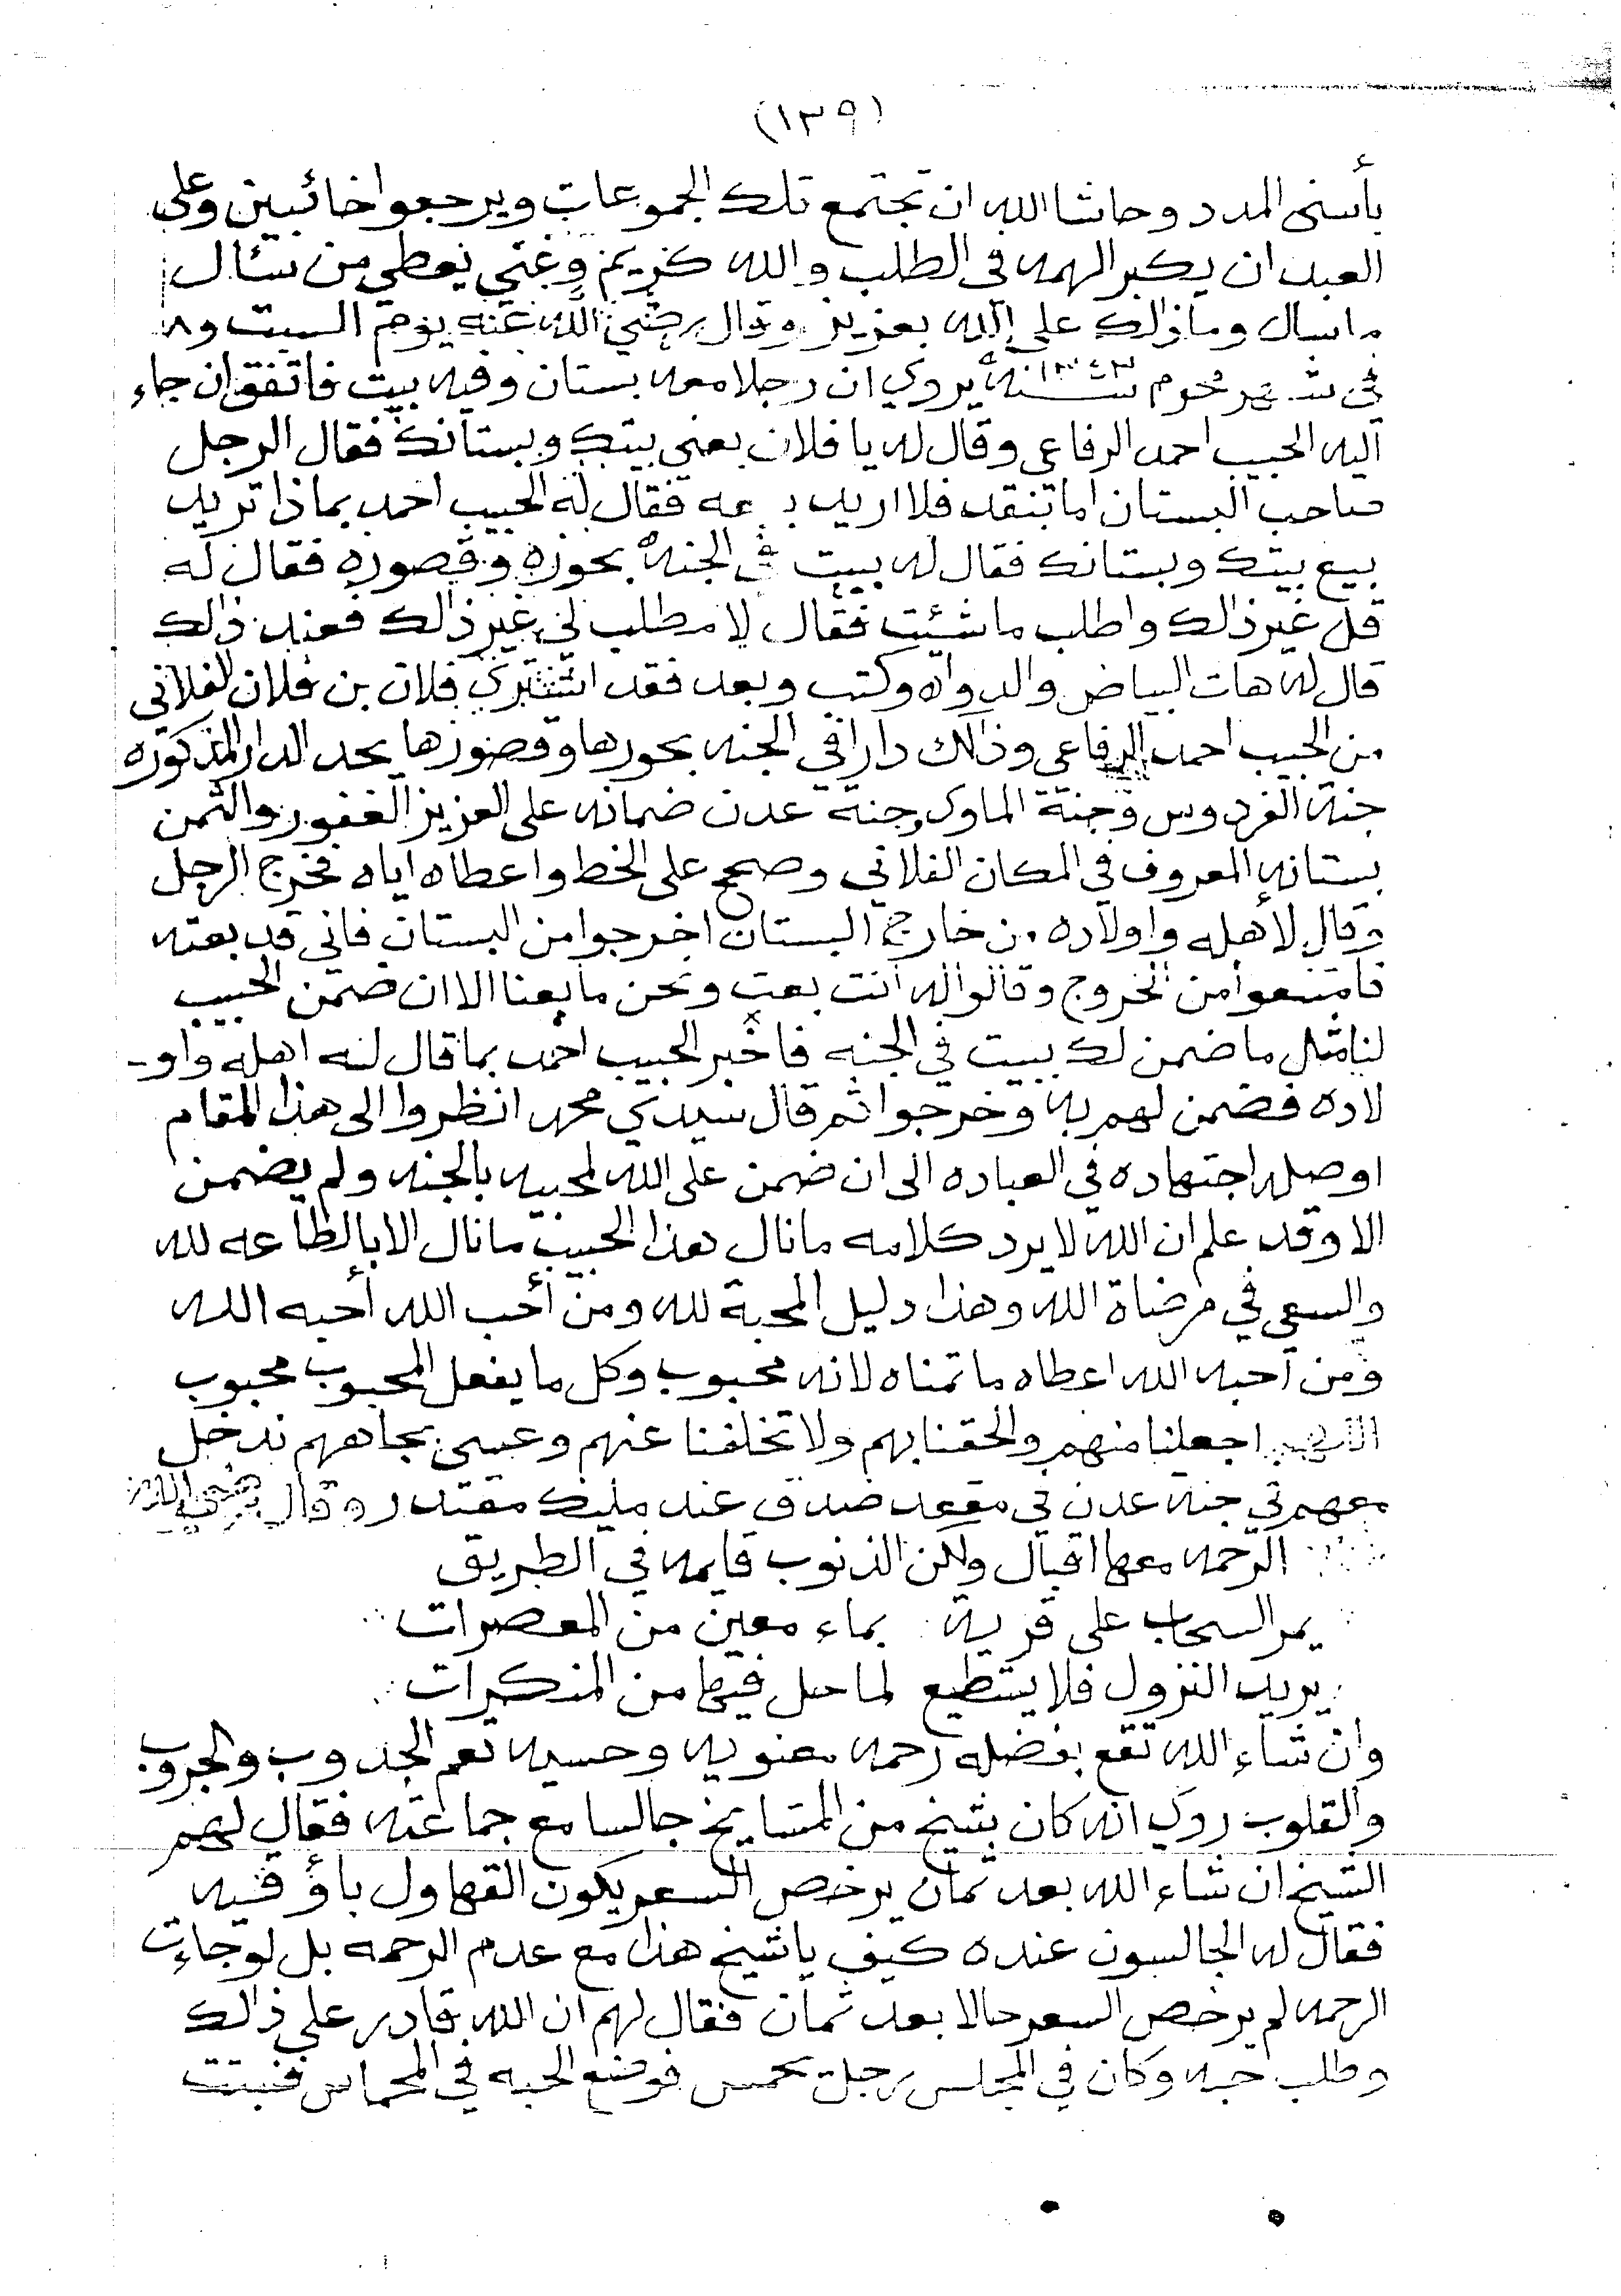 (١٣٩)
بأسنى المدد وحاشا الله ان تجتمع تلك الجموعات ويرجعوا خائبين وعلى
العبد ان يكبر الهمه في الطلب والله كريم وغني يعطي من سئال
ماسال وماذالك على الله بعزيز وقال رضي الله عنه يوم السبت و٨
في شهر محرم سنة ١٣٤٣ يروي ان رجلا معه بستان وفيه بيت فاتفق ان جاء
اليه الحبيب احمد الرفاعي وقال له يا فلان بعني بيتك وبستانك فقال الرجل
صاحب البستان اما تنقد فلا اريد بيعه فقال له الحبيب احمد بماذا تريد
بيع بيتك وبستانك فقال له ببيت في الجنه بحوره وقصوره فقال له
قل غير ذالك واطلب ماشئت فقال لا مطلب لي غير ذالك فعند ذالك
قال له هات البياض والدواه وكتب وبعد فقد اشترى فلان بن فلان الفلاني
من الحبيب احمد الرفاعي وذالك دارا في الجنه بحورها وقصورها يحد الدار المذكوره
جنة الفردوس وجنة الماوى وجنة عدن ضمانه على العزيز الغفور والثمن
بستانه المعروف في المكان الفلاني وصحح على الخط واعطاه اياه فخرج الرجل
وقال لأهله واولاده من خارج البستان اخرجوا من البستان فاني قد بعته
فامتنعوا من الخروج وقالوا له انت بعت ونحن ما بعنا الا ان ضمن الحبيب
لنا مثل ما ضمن لك ببيت في الجنه فاخبر الحبيب احمد بما قال له اهله واو-
لاده فضمن لهم به وخرجوا ثم قال سيدي محمد انظروا الى هذا المقام
اوصله اجتهاده في العباده الى ان ضمن على الله لمحبيه بالجنه ولم يضمن
الا وقد علم ان الله لا يرد كلامه مانال هذا الحبيب مانال الا بالطاعه لله
والسعي في مرضاة الله وهذا دليل المحبة لله ومن أحب الله أحبه الله
ومن احبه الله اعطاه ما تمناه لانه محبوب وكل ما يفعل المحبوب محبوب
اللهم اجعلنا منهم والحقنا بهم ولا تخلفنا عنهم وعسى بجاههم ندخل
معهم في جنة عدن في مقعد صدق عند مليك مقتدر وقال رضي الله
الرحمه معها اقبال ولكن الذنوب قايمه في الطريق
يمر السحاب على قرية بماء معين من المعصرات
يريد النزول فلا يستطيع لما حل فيها من المنكرات
وان شاء الله تقع بفضله رحمه معنويه وحسيه تعم الجدوب والجروب
والقلوب روي انه كان شيخ من المشايخ جالسا مع جماعته فقال لهم
الشيخ ان شاء الله بعد ثمان يرخص السعر يكون القهاول بأوقيه
فقال له الجالسون عنده كيف يا شيخ هذا مع عدم الرحمه بل لو جاءت
الرحمه لم يرخص السعر حالا بعد ثمان فقال لهم ان الله قادر على ذالك
وطلب حبه وكان في المجلس رجل يحمس فوضع الحبه في المحماس فنبتت